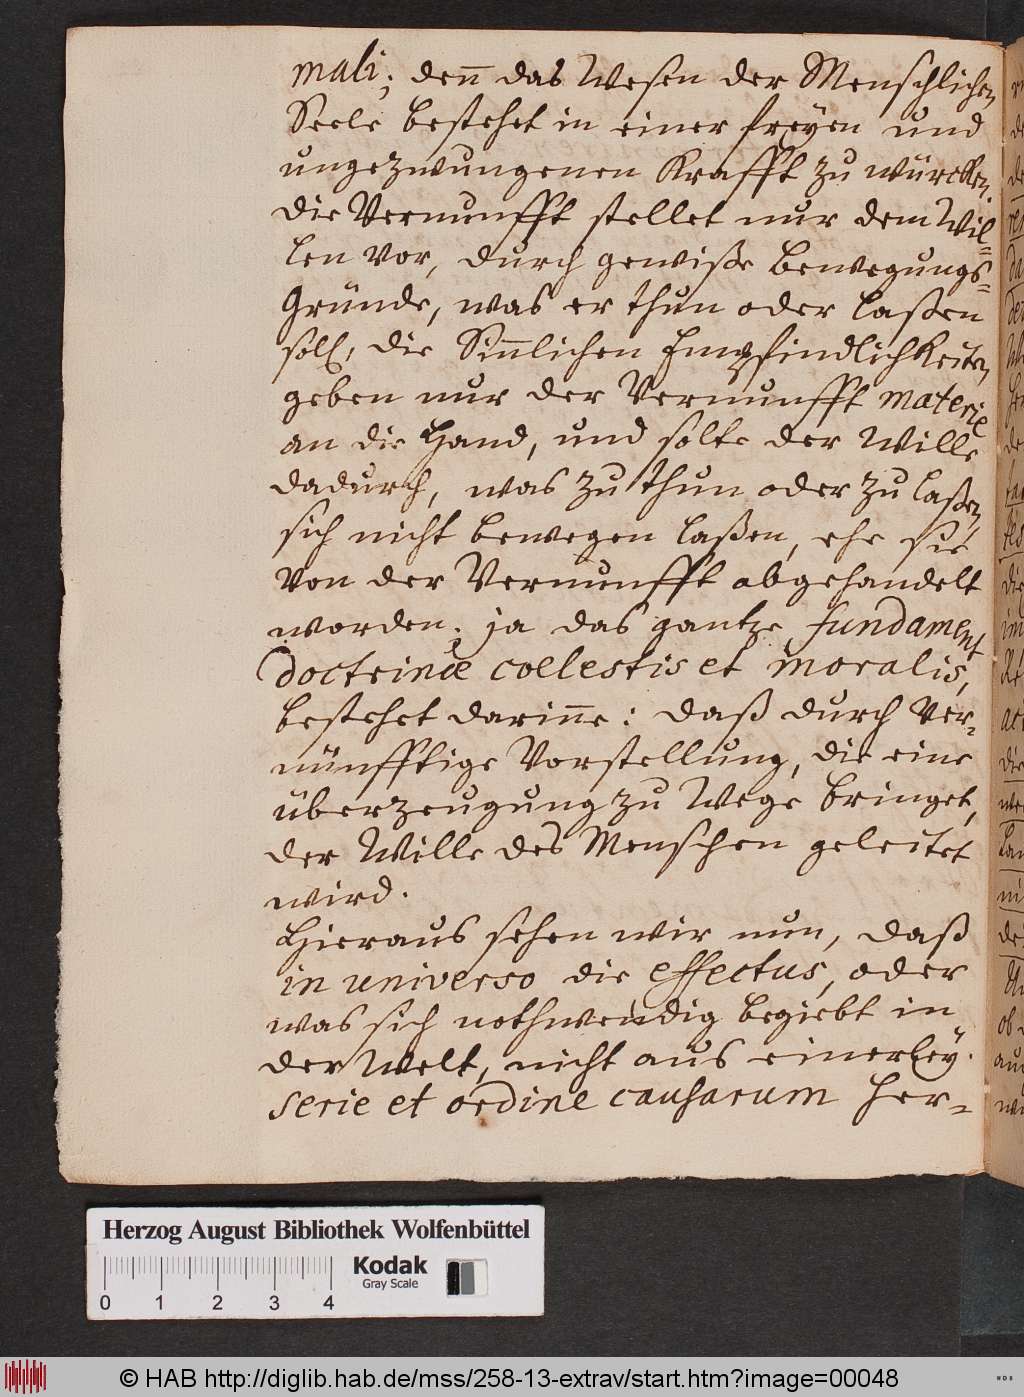 mali; deñ das Wesen der Menschlichen
Seele bestehet in einer freÿen und
ungezwungenen Krafft zu würcken.
die Vernunfft stellet nur dem Wil=
len vor, durch gewiße Bewegungs=
Gründe, was er thun oder laßen
soll, die Siñlichen Empfindlichkeiten,
geben nur der Vernunfft materie
an die Hand, und solte der Wille
dadurch, was zu thun oder zu laßen,
sich nicht bewegen laßen, ehe sie
von der Vernunfft abgehandelt
worden; ja das gantze fundament
doctrinæ coelestis et moralis,
bestehet dariñe: daß durch Ver=
nünfftige Vorstellung, die eine
überzeugung zu Wege bringet,
der Wille des Menschen geleitet
wird.
Hieraus sehen wir nun, daß
in universo die effectus, oder
was sich nothwendig begiebt in
der Welt, nicht aus einerleÿ
serie et ordine causarum her=
Herzog August Bibliothek Wolfenbüttel
Kodak
Gray Scale
0 1 2 3 4
© HAB http://diglib.hab.de/mss/258-13-extrav/start.htm?image=00048